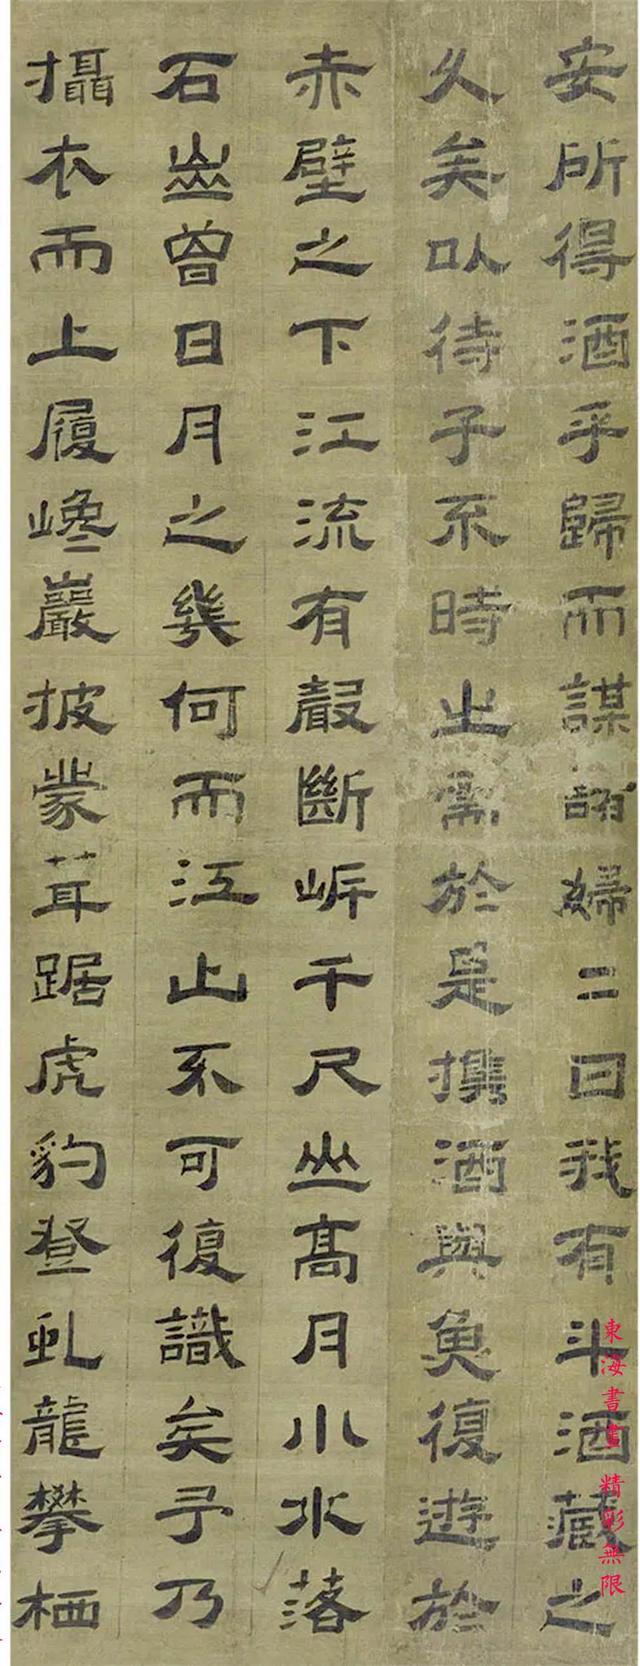 安所得酒乎歸而謀諸婦二曰我有斗酒藏之
久矣以待子不時之需於是携酒與魚復遊於
赤壁之下江流有聲斷岸千尺山高月小水落
石出曾日月之幾何而江山不可復識矣予乃
攝衣而上履巉巖披蒙茸踞虎豹登虬龍攀栖
東海書畫 精彩無限